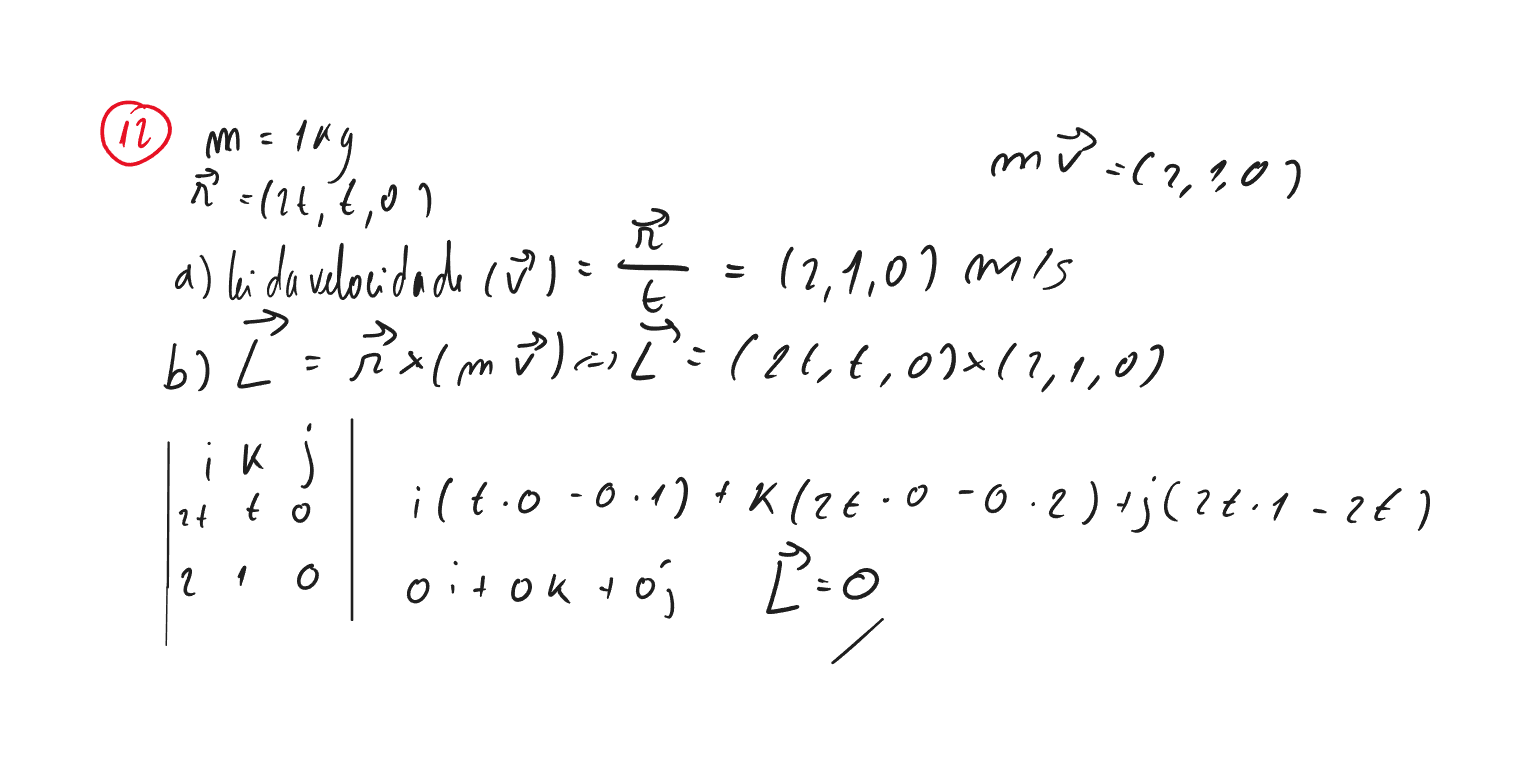 12 m = 1kg
r⃗ = (2t, t, 0)
m v⃗ = (2, 1, 0)
a) lei da velocidade (v⃗) = r⃗ / t = (2, 1, 0) m/s
b) L⃗ = r⃗ × (m v⃗) <=> L⃗ = (2t, t, 0) × (2, 1, 0)
| i k j |
| 2t t 0 |
| 2 1 0 |
i(t·0 - 0·1) + k(2t·0 - 0·2) + j(2t·1 - 2t)
0i + 0k + 0j L⃗ = 0